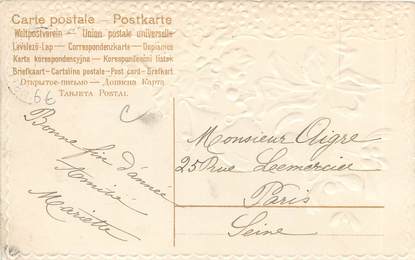 Carte postale - Postkarte
Weltpostverein - Union postale universelle
Levelező-Lap - Correspondenzkarte - Dopisnice
Karta korespondencyjna - Korespondenční lístek
Briefkaart - Cartolina postale - Post card - Brefkort
Открытое письмо - Дописна Карта
Tarjeta Postal
6c
Bonne fin d'année
Amitié
Mariette
Monsieur Aigre
25 Rue Lemercier
Paris
Seine